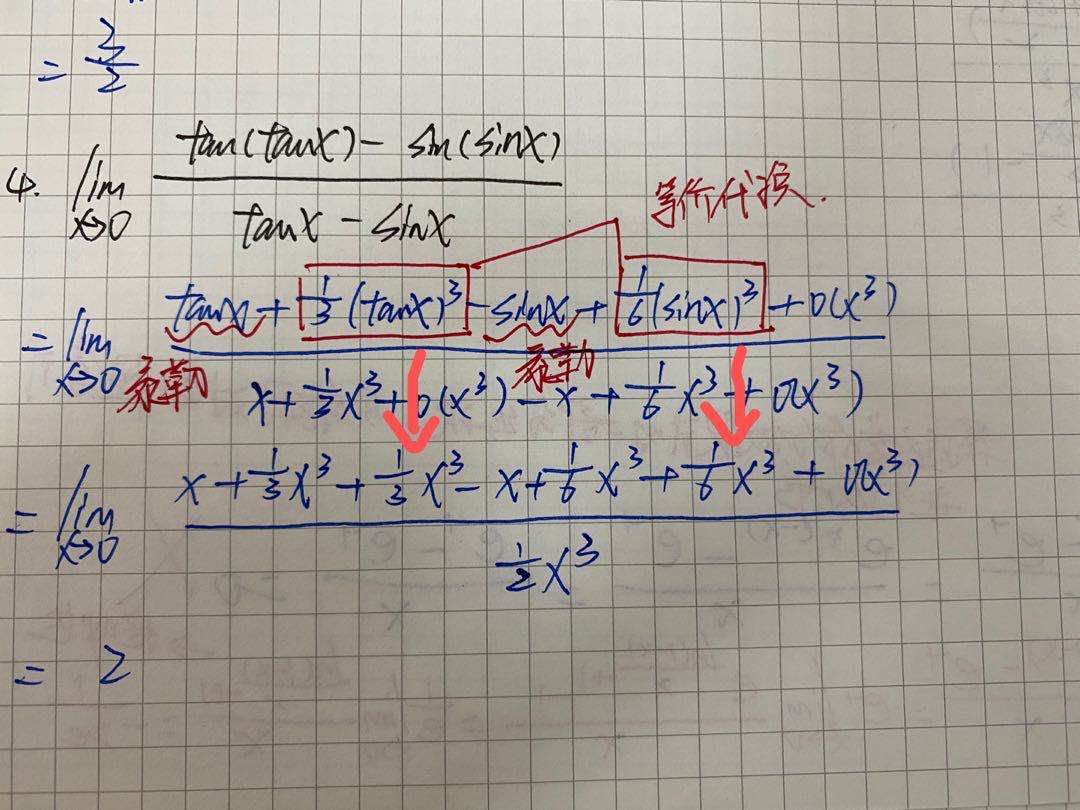 = 3/2
4. lim x→0 (tan(tanx) - sin(sinx)) / (tanx - sinx)
等价代换.
= lim x→0 (tanx + 1/3(tanx)³ - sinx + 1/6(sinx)³ + o(x³)) / (x + 1/3x³ + o(x³) - x + 1/6x³ + o(x³))
泰勒 泰勒
= lim x→0 (x + 1/3x³ + 1/3x³ - x + 1/6x³ + 1/6x³ + o(x³)) / (1/2x³)
= 2